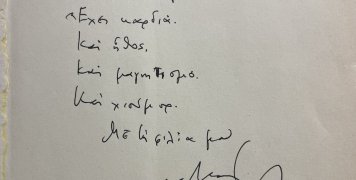 Ἔχει καρδιά.
Καὶ ἦθος.
Καὶ μαγνητισμό.
Καὶ χιούμορ.
Μὲ τὴ φιλία μου